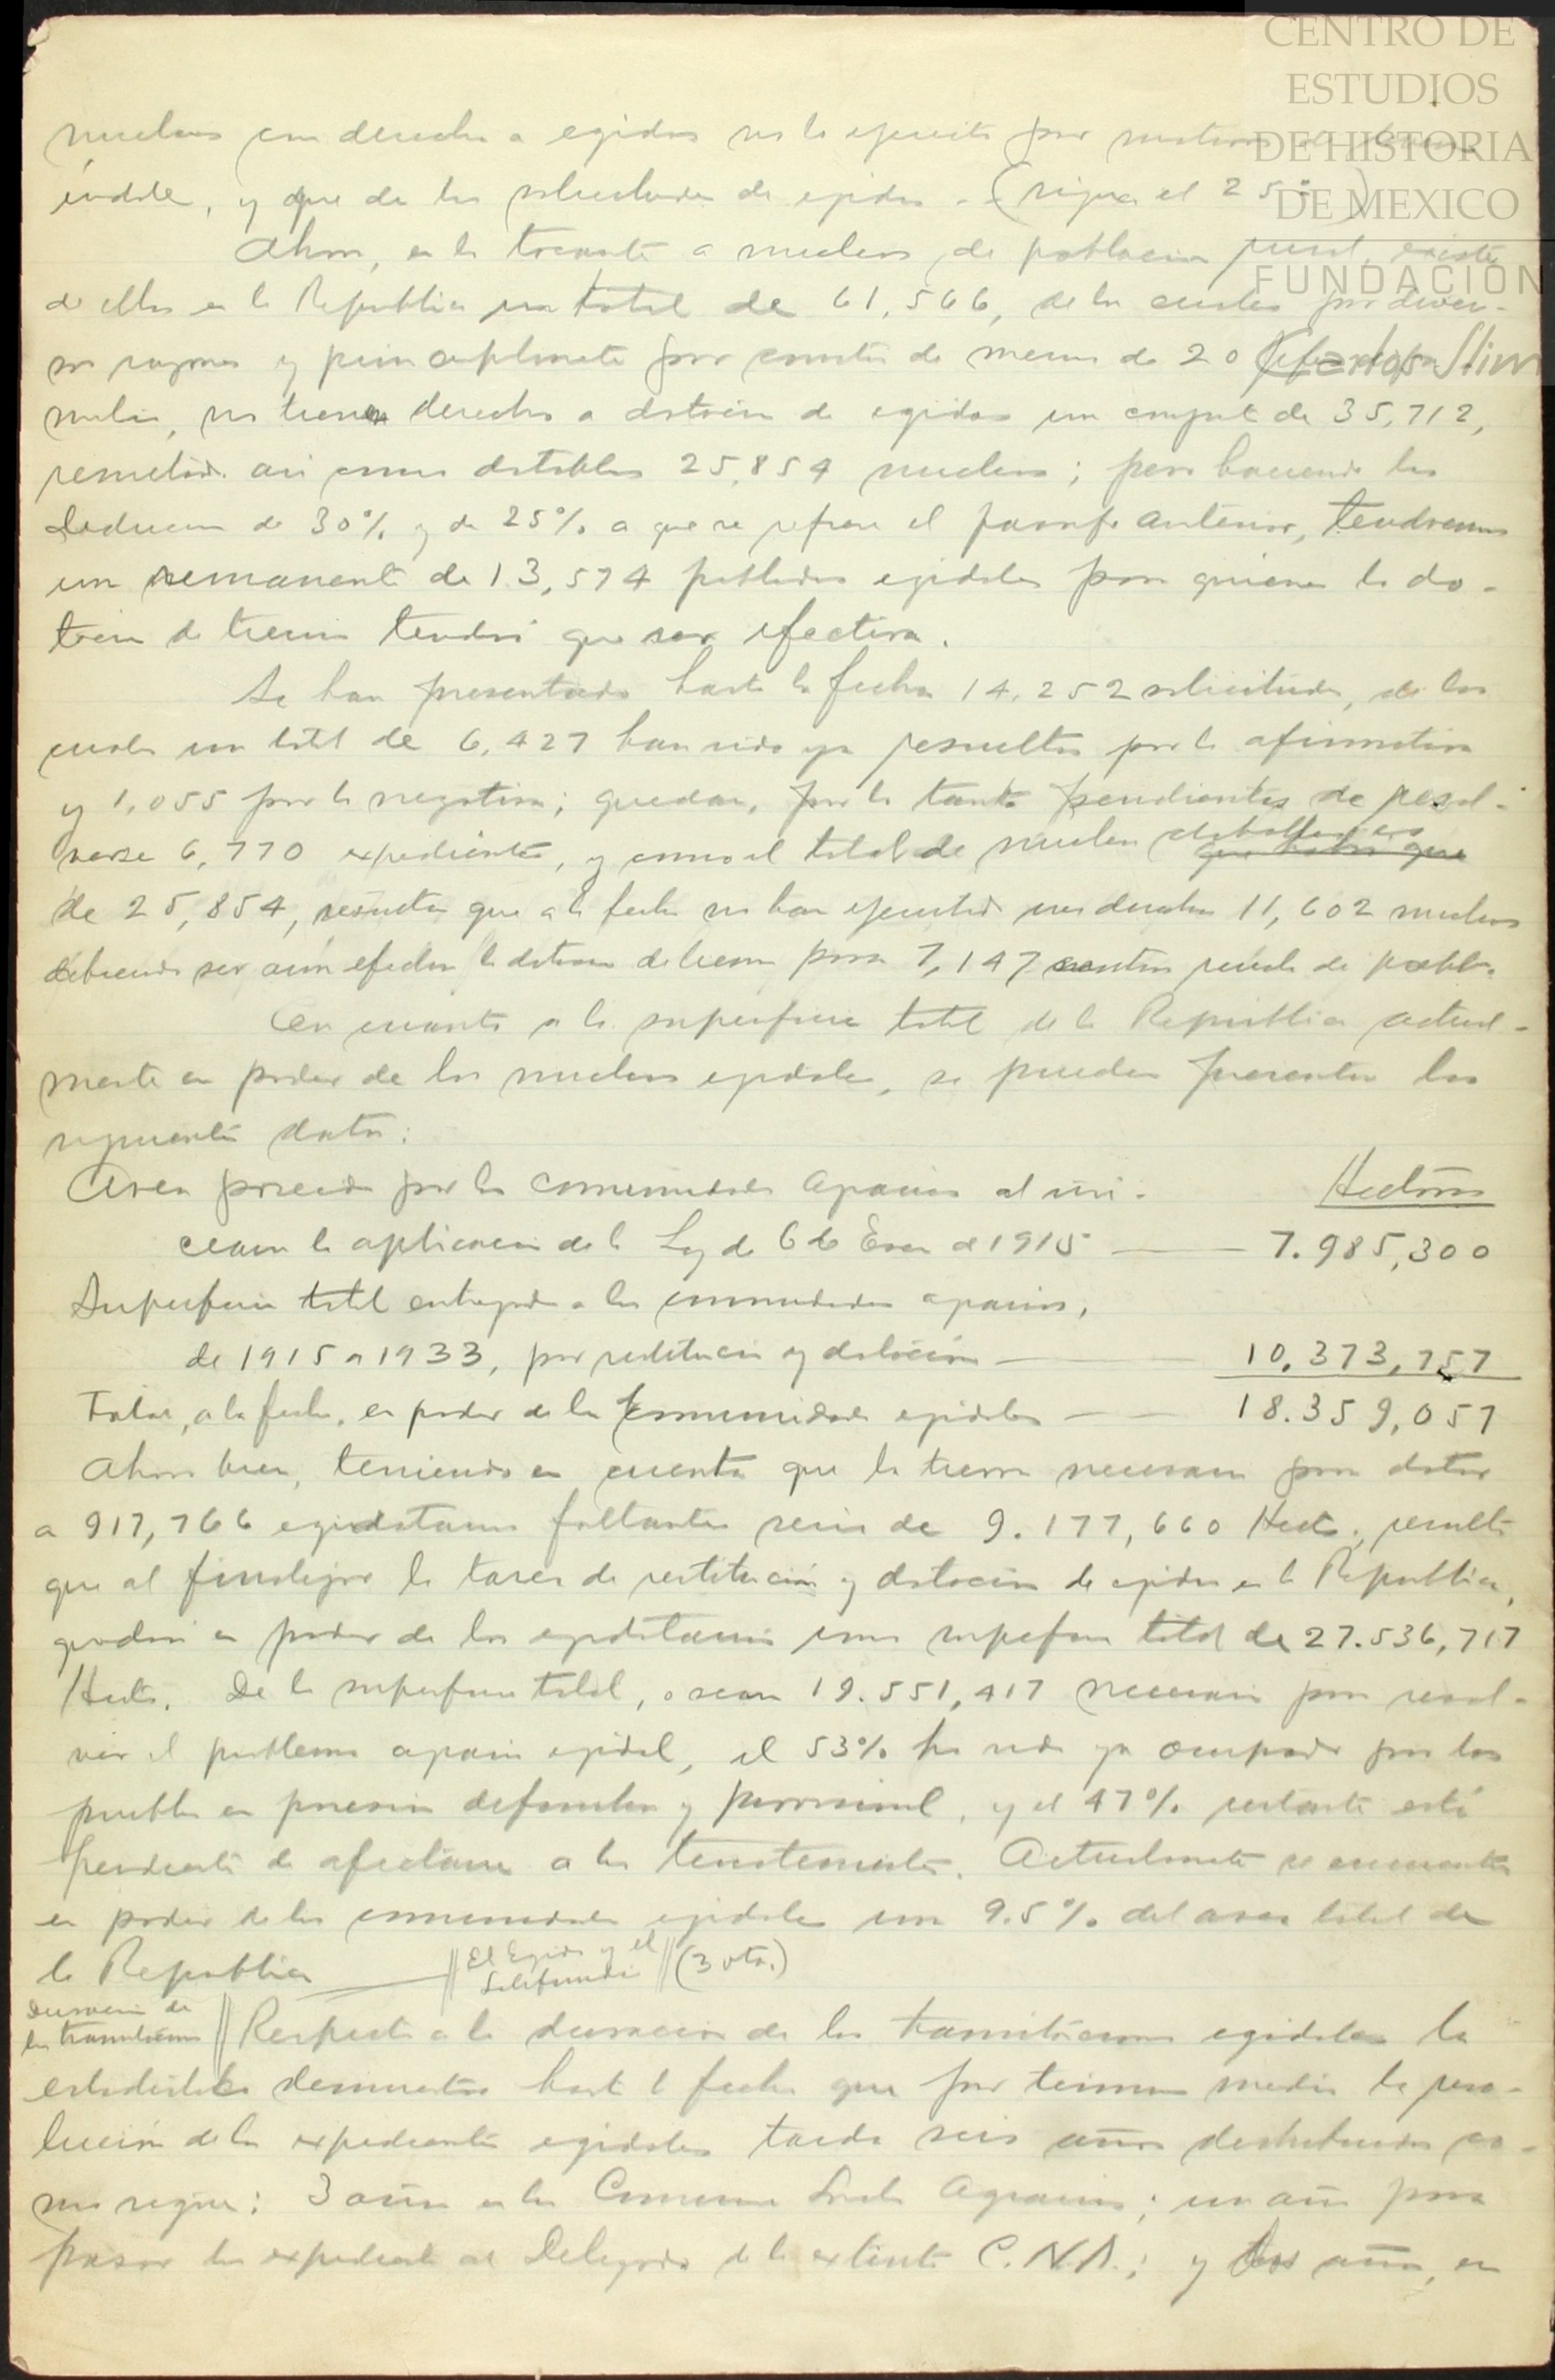 CENTRO DE
ESTUDIOS
DE HISTORIA
DE MEXICO
FUNDACIÓN
Carlos Slim
nucleos con derecho a egidos no lo ejercita por motivos de
indole, y que de las solicitudes de egidos - (sigue el 25%)
Ahora, en lo tocante a nucleos de poblacion rural, existe
de ellos en la Republica un total de 61,566, de los cuales por diver-
sas razones y principalmente por constar de menos de 20
milia, no tienen derecho a dotación de egidos un computo de 35,712,
resultando asi como dotables 25,854 nucleos; pero haciendo las
deduccion de 30% y de 25% a que se refiere el parrafo anterior, tendremos
un remanente de 13,574 poblados egidales para quienes la do-
tacion de tierras tendrá que ser efectiva.
Se han presentado hasta la fecha 14,252 solicitudes, de las
cuales un total de 6,427 han sido ya resueltas por la afirmativa
y 1,055 por la negativa; quedan, por lo tanto pendientes de resol-
verse 6,770 expedientes, y como el total de nucleos dotables es
que habrá que
de 25,854, resulta que a la fecha no han ejercitado sus derechos 11,602 nucleos
debiendo ser aún efectiva la dotacion de tierras para 7,147 centros rurales de pobl.
En cuanto a la superficie total de la Republica actual-
mente en poder de los nucleos egidales, se pueden presentar los
siguientes datos:
Area poseida por las comunidades agrarias al ini-
Hectáreas
ciarse la aplicacion de la Ley de 6 de Enero de 1915 — 7.985,300
Superficie total entregada a las comunidades agrarias,
de 1915 a 1933, por restitucion y dotación — 10.373,757
Total, a la fecha, en poder de las comunidades egidales — 18.359,057
Ahora bien, teniendo en cuenta que la tierra necesaria para dotar
a 917,766 egidatarios faltantes seria de 9.177,660 Hects., resulta
que al finalizar la tarea de restitución y dotación de egidos en la Republica,
quedará en poder de los egidatarios una superficie total de 27.536,717
Hects. De la superficie total, o sean 19.551,417 necesarias para resol-
ver el problema agrario egidal, el 53% ha sido ya ocupado por los
pueblos en posesion definitiva y provisional, y el 47% restante está
pendiente de afectarse a los terratenientes. Actualmente se encuentra
en poder de las comunidades egidales un 9.5% del area total de
la Republica — || El Egido y el Latifundio || (3 vta.)
Duracion de
las tramitaciones || Respecto a la duracion de las tramitaciones egidales la
estadistica demuestra hasta la fecha que por termino medio la reso-
lución de los expedientes egidales tarda seis años distribuidos co-
mo sigue: 3 años en las Comisiones Locales Agrarias; un año para
pasar los expedientes al Delegado de la extinta C.N.A.; y dos años, en